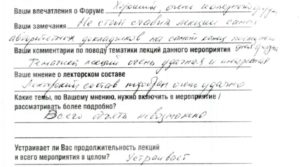 Ваши впечатления о Форуме Хороший, очень
Ваши замечания Не стоит ставить лекции самых
на самый конец
Ваши комментарии по поводу тематики лекций данного мероприятия
Тематика лекций очень удачная и интересная
Ваше мнение о лекторском составе
Лекторский состав подобран очень удачно
Какие темы, по Вашему мнению, нужно включить в мероприятие /
рассматривать более подробно?
Всего объять невозможно
Устраивает ли Вас продолжительность лекций
и всего мероприятия в целом? Устраивает